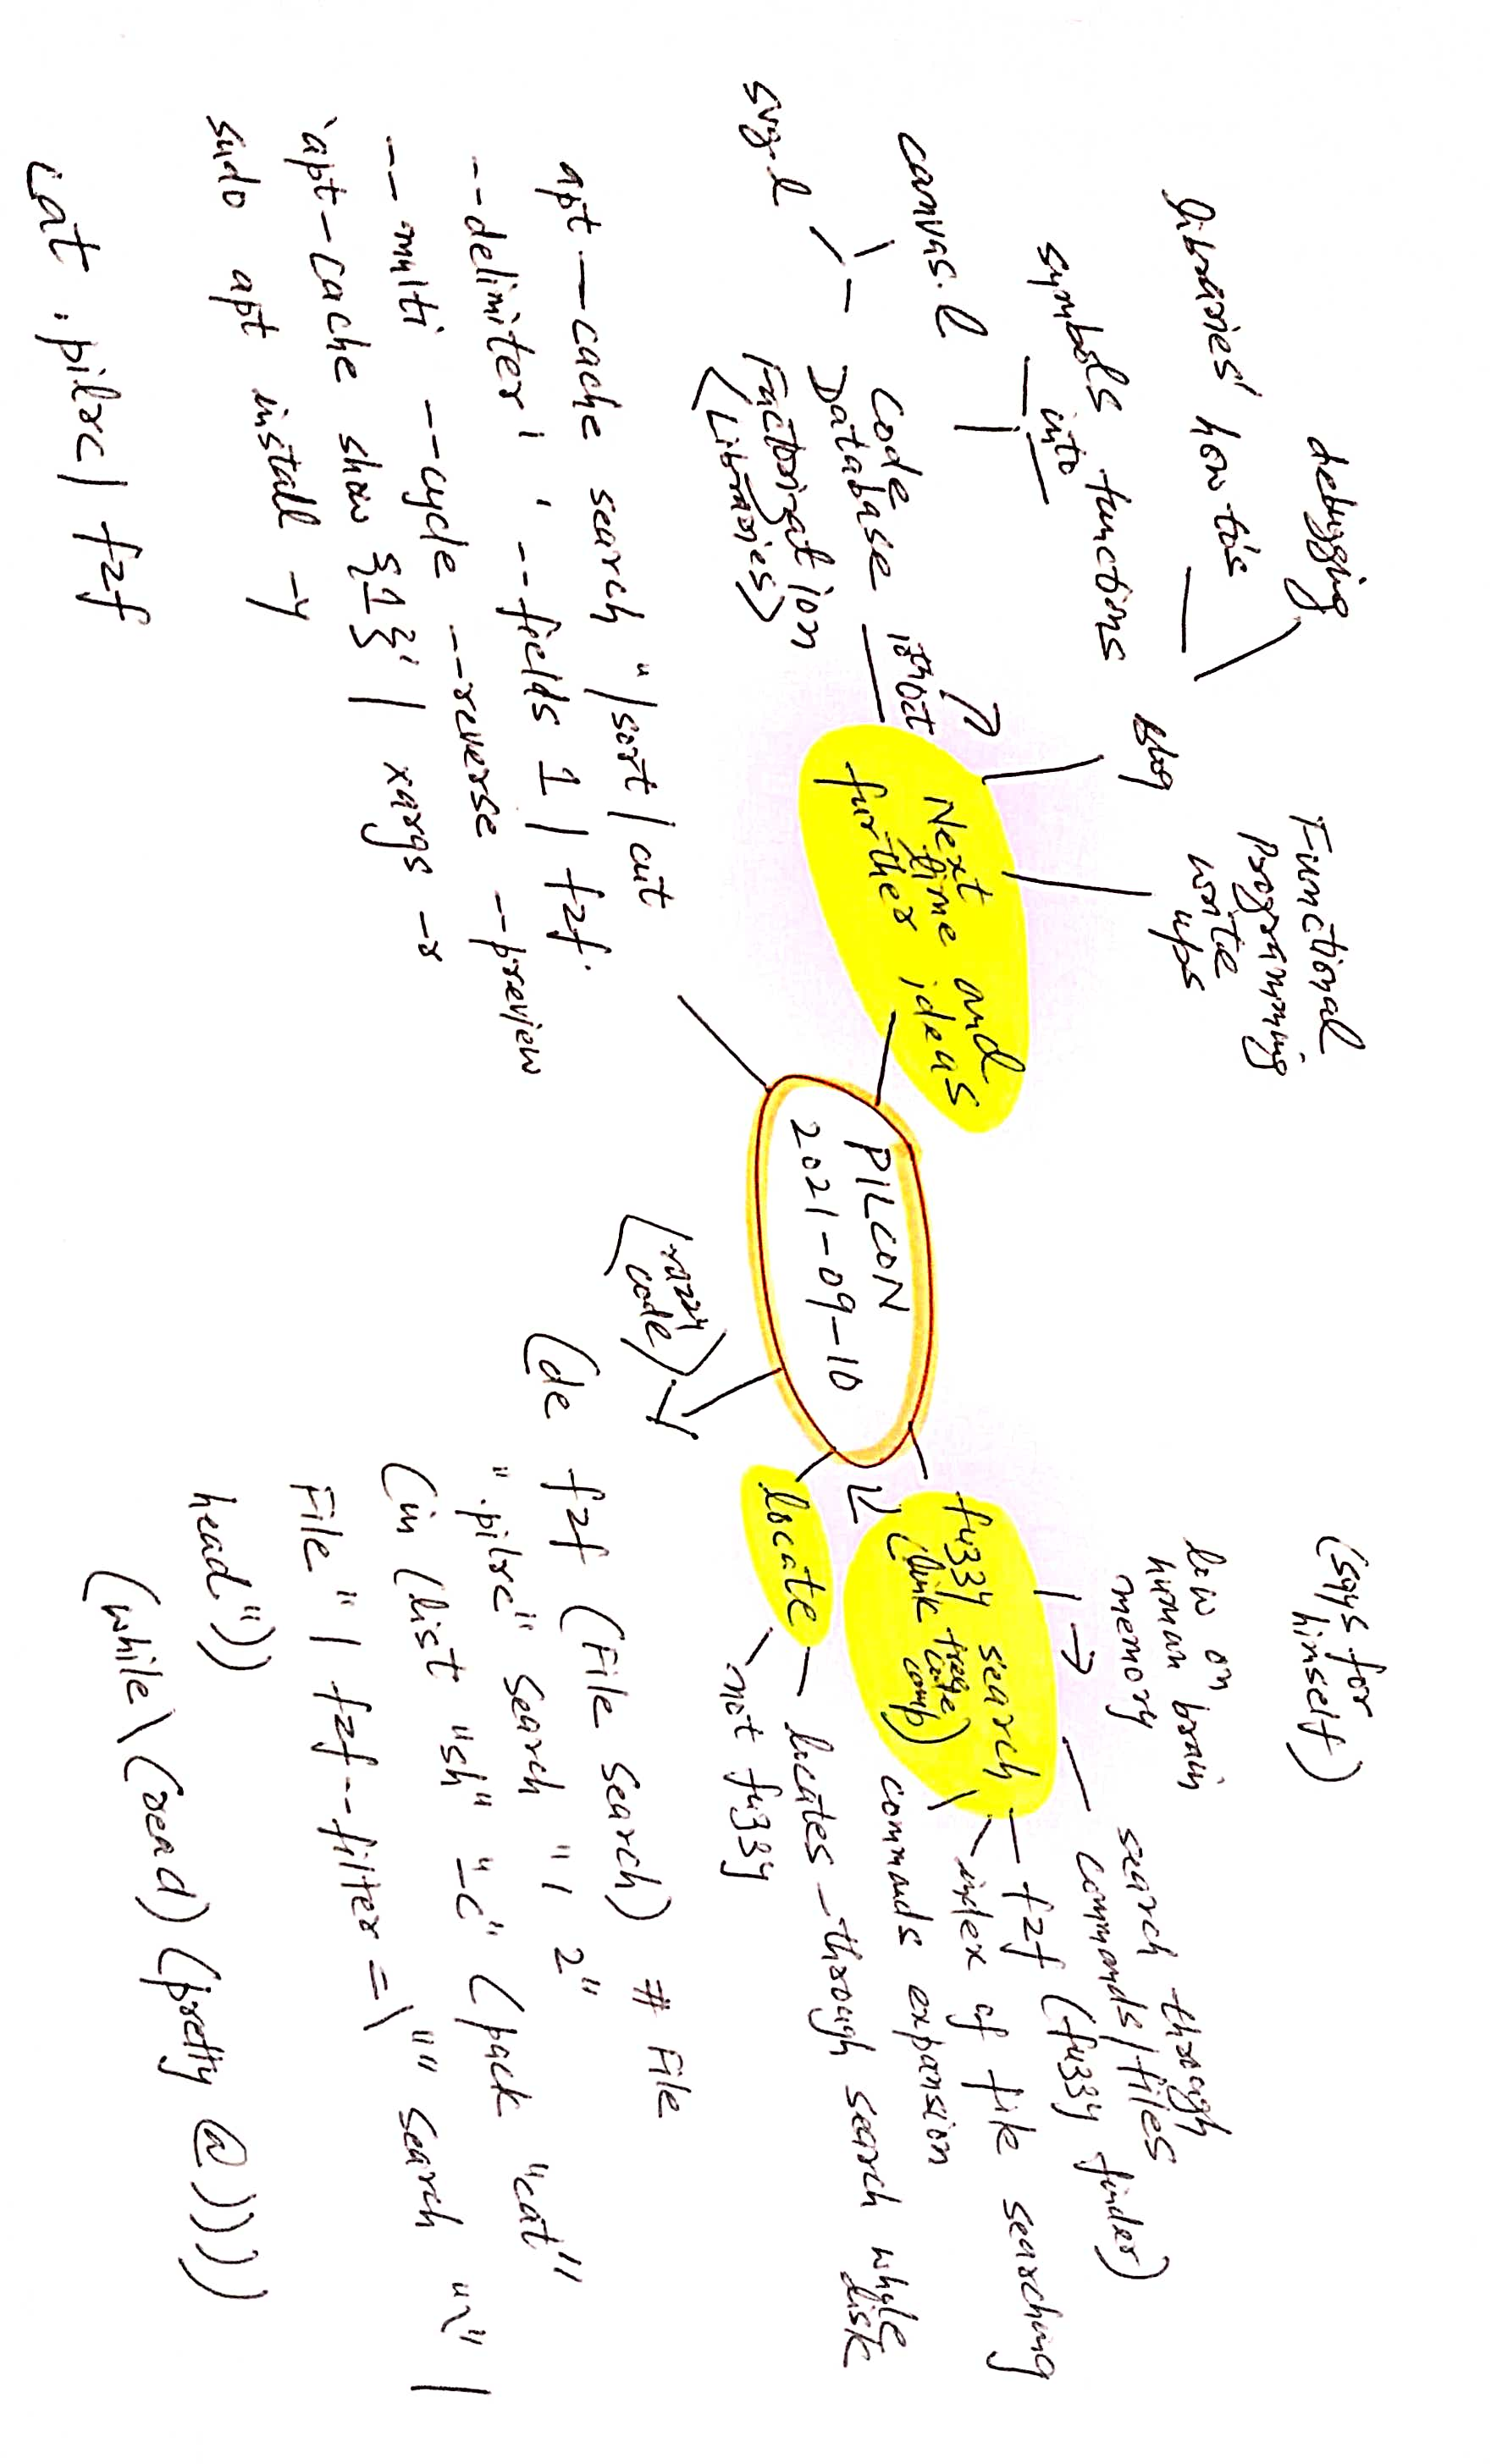 PILCON
2021-09-10
Next
time and
further ideas
Functional
programming
write
ups
blog
debugging
libraries' how to's
symbols functions
into
ithoct
code
Database
Factorization
(Libraries)
canvas.l
svg.l
fuzzy search
(link tree
comp)
low on
human brain
memory
(says for
himself)
search through
commands/files
fzf (fuzzy finder)
index of file searching
commands expansion
locate
locates - through search whole
disk
not fuzzy
apt-cache search "|sort|cut
--delimiter ' ' --fields 1 | fzf
--multi --cycle --reverse --preview
'apt-cache show {1}' | xargs -r
sudo apt install -y
cat .pilrc| fzf
code)
(de fzf (File Search) # File
".pilrc" Search "1 2"
(in (list "sh" "-c" (pack "cat"
File "| fzf --filter=\"" Search "\" |
head"))
(while\(read) (pretty @))))